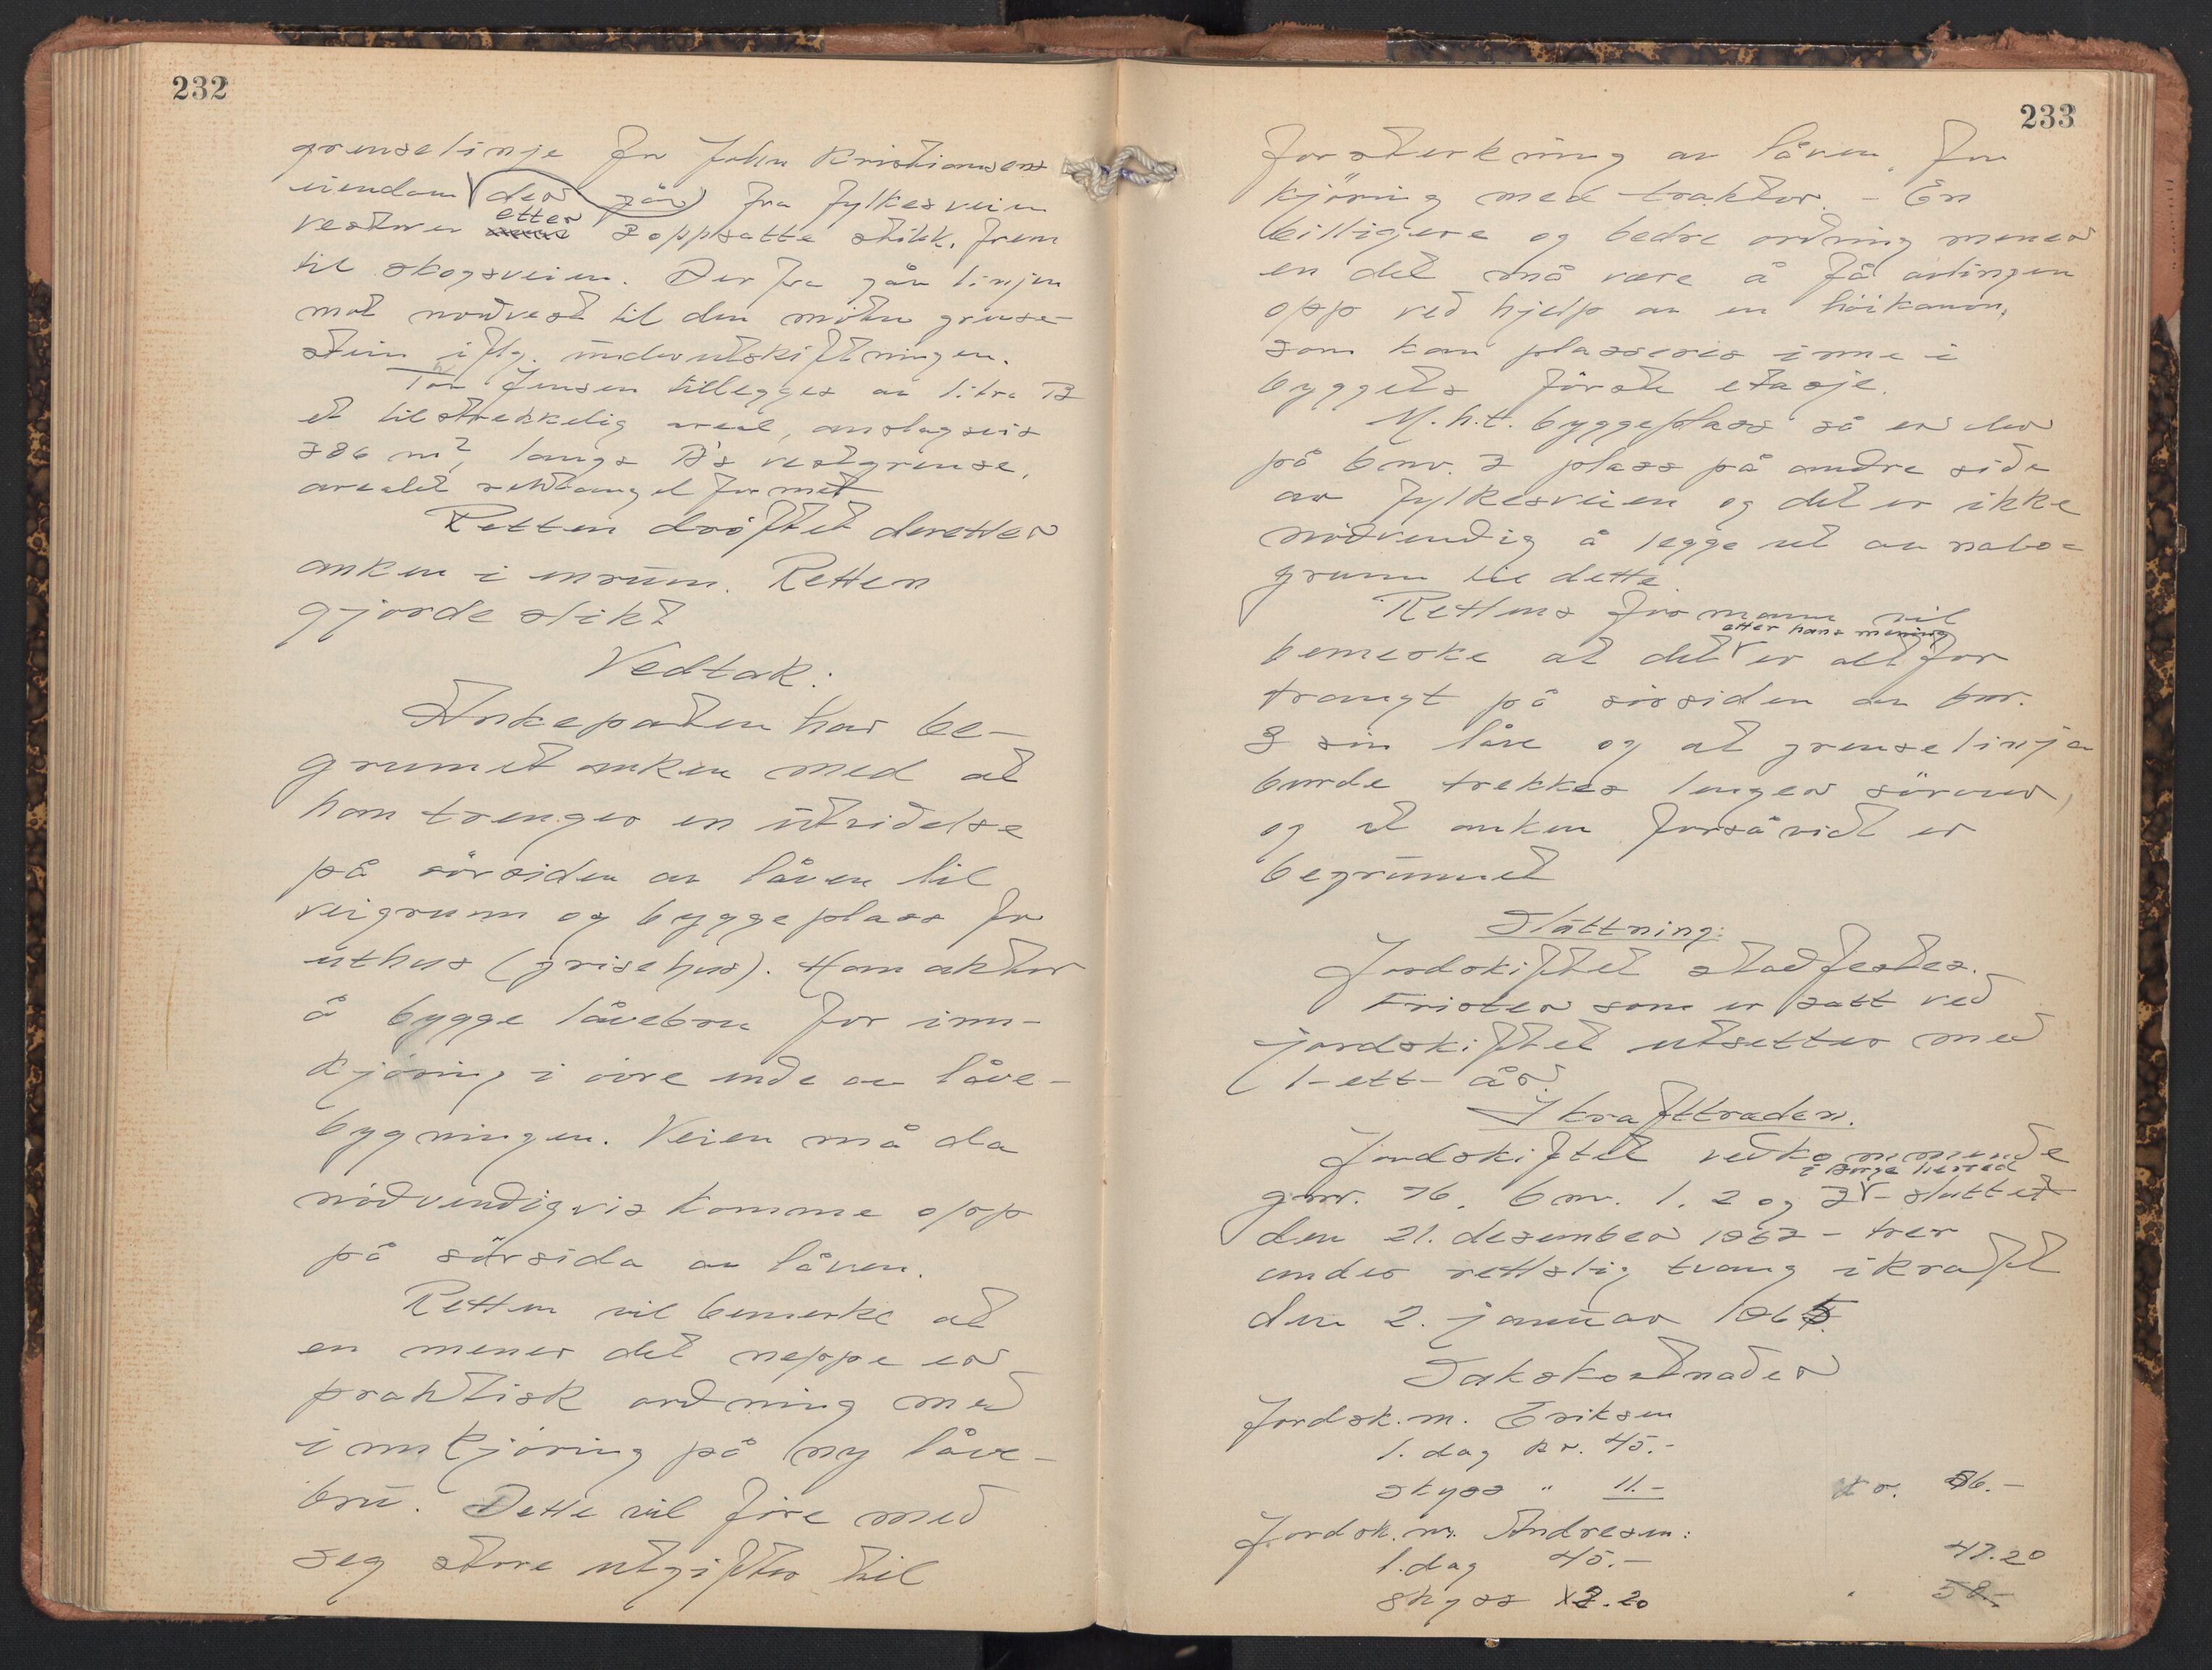 232
grenselinje for John Kristiansens
eiendom der går fra fylkesveien
vestover etter 3 oppsatte stikk, frem
til skogsveien. Der fra går linjen
mot nordvest til den midtre grense-
stein iflg. underutskiftningen.
Tor Jensen tillegges av litra B
et tilstrekkelig areal, anslagsvis
386 m², langs B's vestgrense,
arealet rektangel formet
Retten drøftet deretter
anken i enrum. Retten
gjorde slikt
Vedtak:
Ankeparten har be-
grunnet anken med at
han trenger en utvidelse
på sörsiden av låven til
veigrunn og byggeplass for
uthus (grisehus). Han akter
å bygge låvebru for inn-
kjöring i övre ende av låve-
bygningen. Veien må da
nödvendigvis komme opp
på sörsida av låven.
Retten vil bemerke at
en mener det neppe er
praktisk ordning med
innkjöring på ny låve-
bru. Dette vil före med
seg större utgifter til
233
forsterkning av låven for
kjöring med traktor. - En
billigere og bedre ordning mener
en det må være å få avlingen
opp ved hjelp av en höikanon,
som kan plasseres inne i
byggets förste etasje.
M.h.t. byggeplass så er der
på bnr. 3 plass på andre side
av fylkesveien og det er ikke
nödvendig å legge ut av nabo-
grunn til dette.
Rettens formann vil
etter hans mening
bemerke at det er alt for
trangt på sörsiden av bnr.
3 sin låve og at grenselinja
burde trekkes lenger sörover,
og at anken forsåvidt er
begrunnet
Slutning:
Jordskiftet stadfestes.
Frister som er satt ved
jordskiftet utsettes med
1-ett- år.
Ikrafttreden.
Jordskiftet vedkommende
i Borge herred
gnr. 76, bnr. 1, 2 og 3 - sluttet
den 21. desember 1963 - trer
under rettslig tvang i kraft
den 2. januar 1965.
Sakskostnader
Jordsk.m. Eriksen
1. dag kr. 45.-
skyss " 11.- kr. 56.-
Jordsk.m. Andresen:
1. dag 45.- 47.20
skyss 2.20 " 58.-